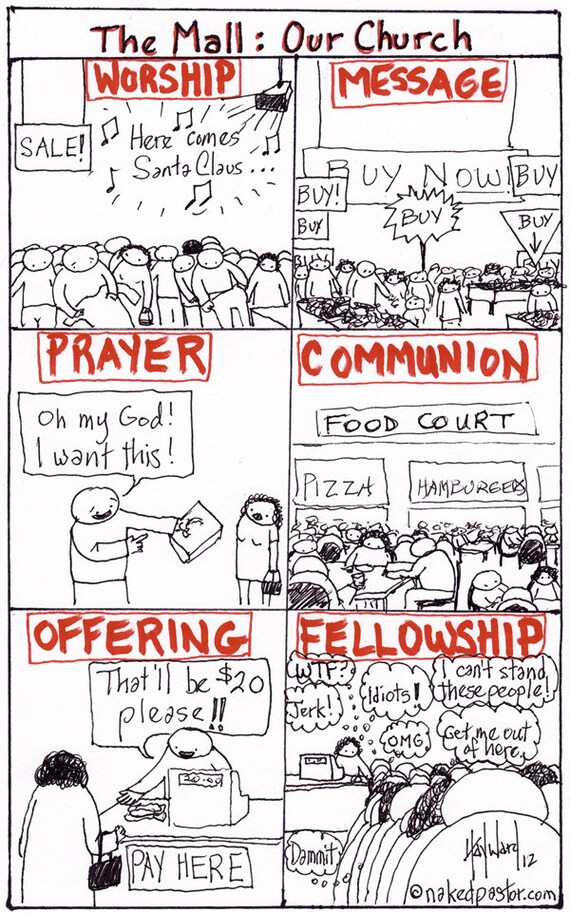 The Mall: Our Church
WORSHIP
SALE!
Here comes
Santa Claus...
MESSAGE
BUY NOW!
BUY
BUY!
BUY
BUY
BUY
BUY
PRAYER
Oh my God!
I want this!
COMMUNION
FOOD COURT
PIZZA
HAMBURGERS
OFFERING
That'll be $20
please!!
20.00
PAY HERE
FELLOWSHIP
WTF?
Jerk!
Idiots!
I can't stand
these people!
OMG
Get me out
of here.
Dammit
Hayward 12
©nakedpastor.com